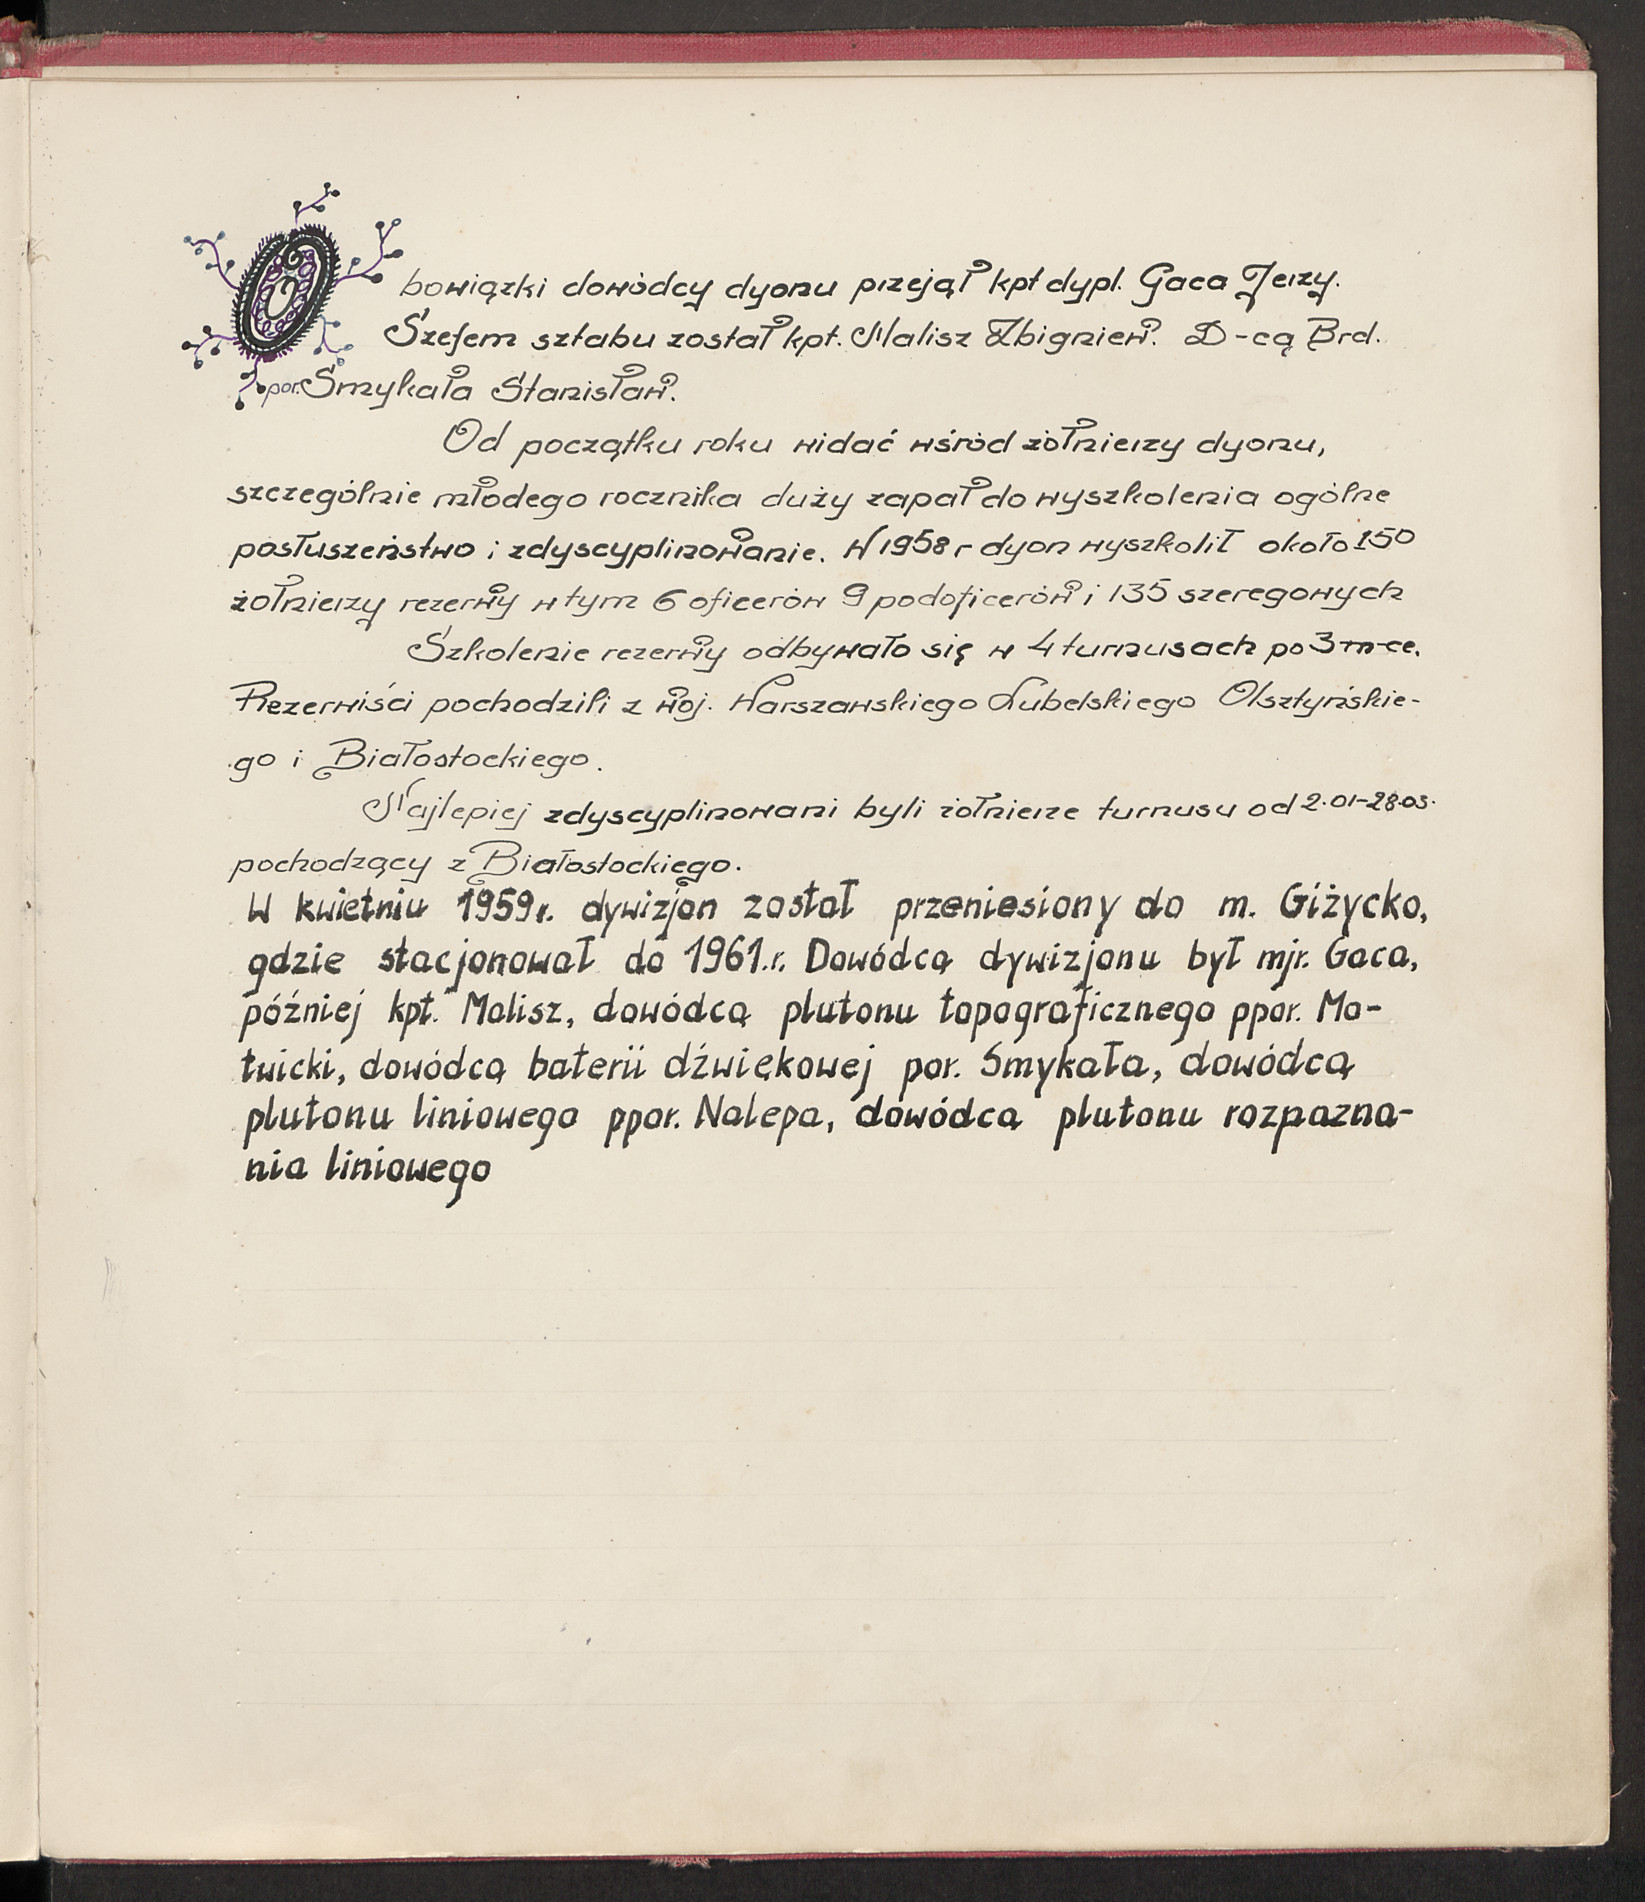 Obowiązki dowódcy dyonu przejął kpt dypl. Gaca Jerzy.
Szefem sztabu został kpt. Malisz Zbigniew. D-cą Brd.
por. Smykała Stanisław.
Od początku roku widać wśród żołnierzy dyonu,
szczególnie młodego rocznika duży zapał do wyszkolenia ogólne
posłuszeństwo i zdyscyplinowanie. W 1958 r dyon wyszkolił około 150
żołnierzy rezerwy w tym 6 oficerów 9 podoficerów i 135 szeregowych
Szkolenie rezerwy odbywało się w 4 turnusach po 3 m-ce.
Rezerwiści pochodzili z woj. Warszawskiego Lubelskiego Olsztyńskie-
go i Białostockiego.
Najlepiej zdyscyplinowani byli żołnierze turnusu od 2.01-28.03.
pochodzący z Białostockiego.
W kwietniu 1959 r. dywizjon został przeniesiony do m. Giżycko,
gdzie stacjonował do 1961.r. Dowódcą dywizjonu był mjr. Gaca,
później kpt. Malisz, dowódcą plutonu topograficznego ppor. Mo-
twicki, dowódcą baterii dźwiękowej por. Smykała, dowódcą
plutonu liniowego ppor. Nalepa, dowódcą plutonu rozpozna-
nia liniowego